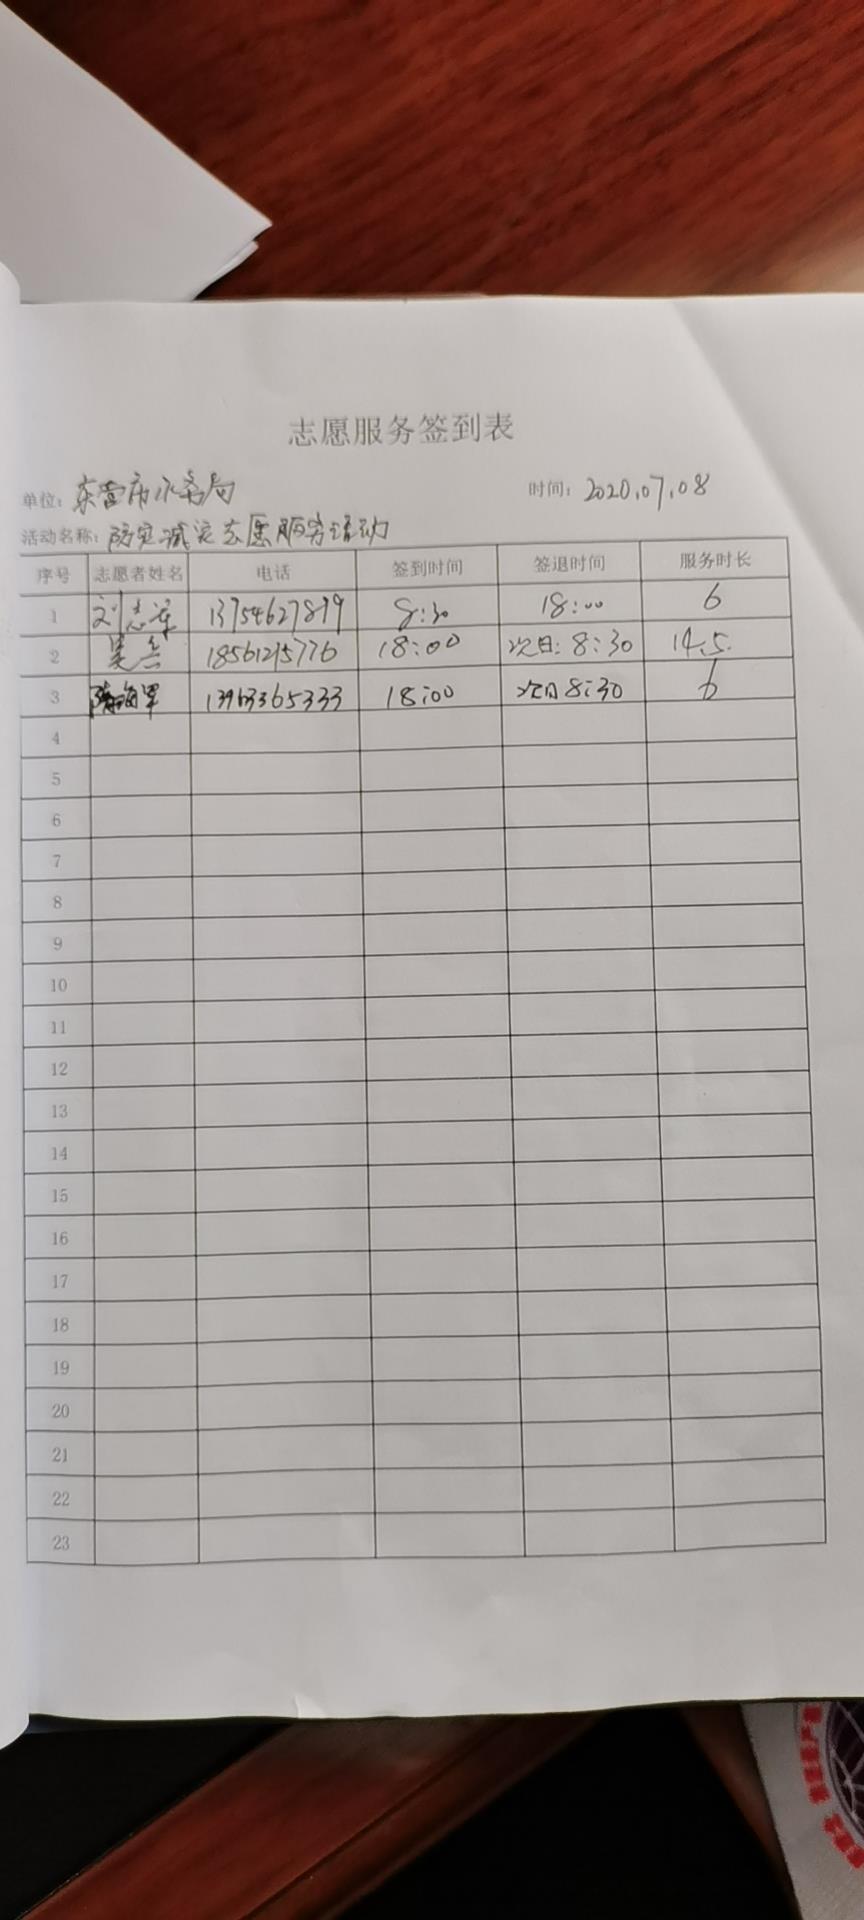 志愿服务签到表
单位：东营市水务局 时间：2020.07.08
活动名称：防灾减灾志愿服务活动
序号 志愿者姓名 电话 签到时间 签退时间 服务时长
1 刘志 8:30 18:00 6
2 吴 18561215776 18:00 次日：8:30 14.5.
3 海军 13963365333 18:00 次日8:30 6
4
5
6
7
8
9
10
11
12
13
14
15
16
17
18
19
20
21
22
23